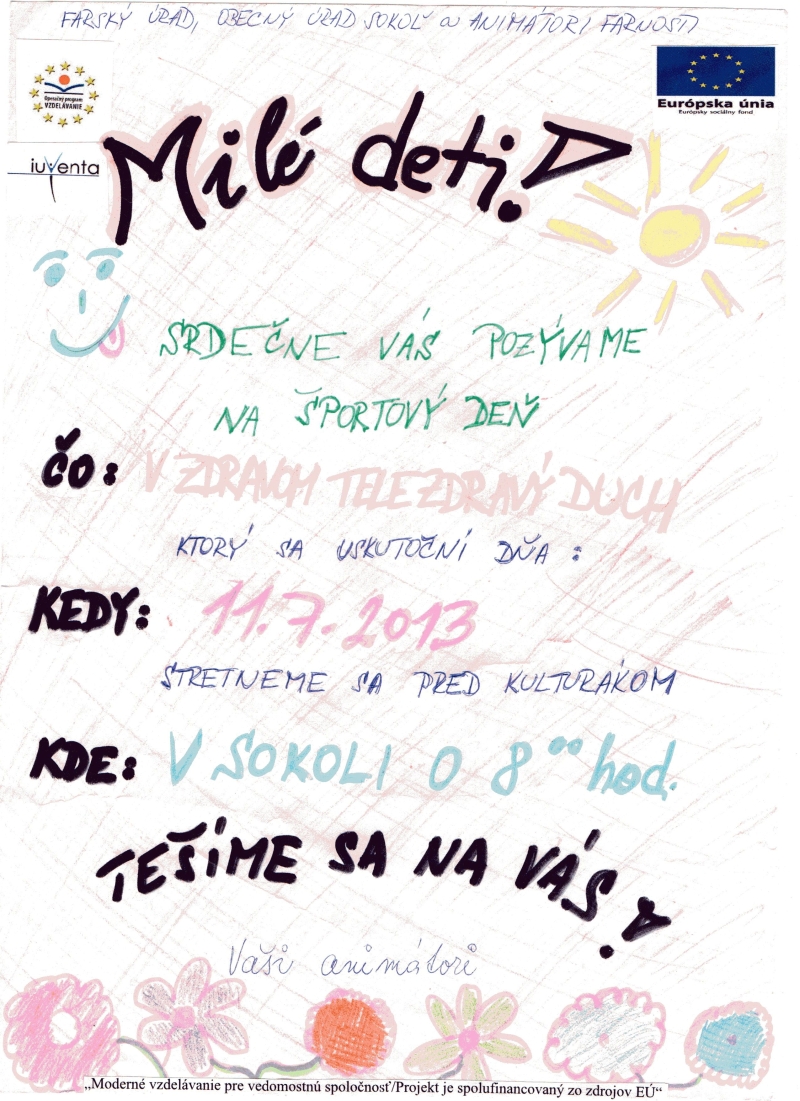 FARSKÝ ÚRAD, OBECNÝ ÚRAD SOKOĽ a ANIMÁTORI FARNOSTI
Operačný program
VZDELÁVANIE
Európska únia
Európsky sociálny fond
iuventa
Milé deti!
SRDEČNE VÁS POZÝVAME
NA ŠPORTOVÝ DEŇ
ČO: V ZDRAVOM TELE ZDRAVÝ DUCH
KTORÝ SA USKUTOČNÍ DŇA:
KEDY: 11.7.2013
STRETNEME SA PRED KULTURÁKOM
KDE: V SOKOLI O 8⁰⁰ hod.
TEŠÍME SA NA VÁS!
Vaši animátori
„Moderné vzdelávanie pre vedomostnú spoločnosť/Projekt je spolufinancovaný zo zdrojov EÚ“